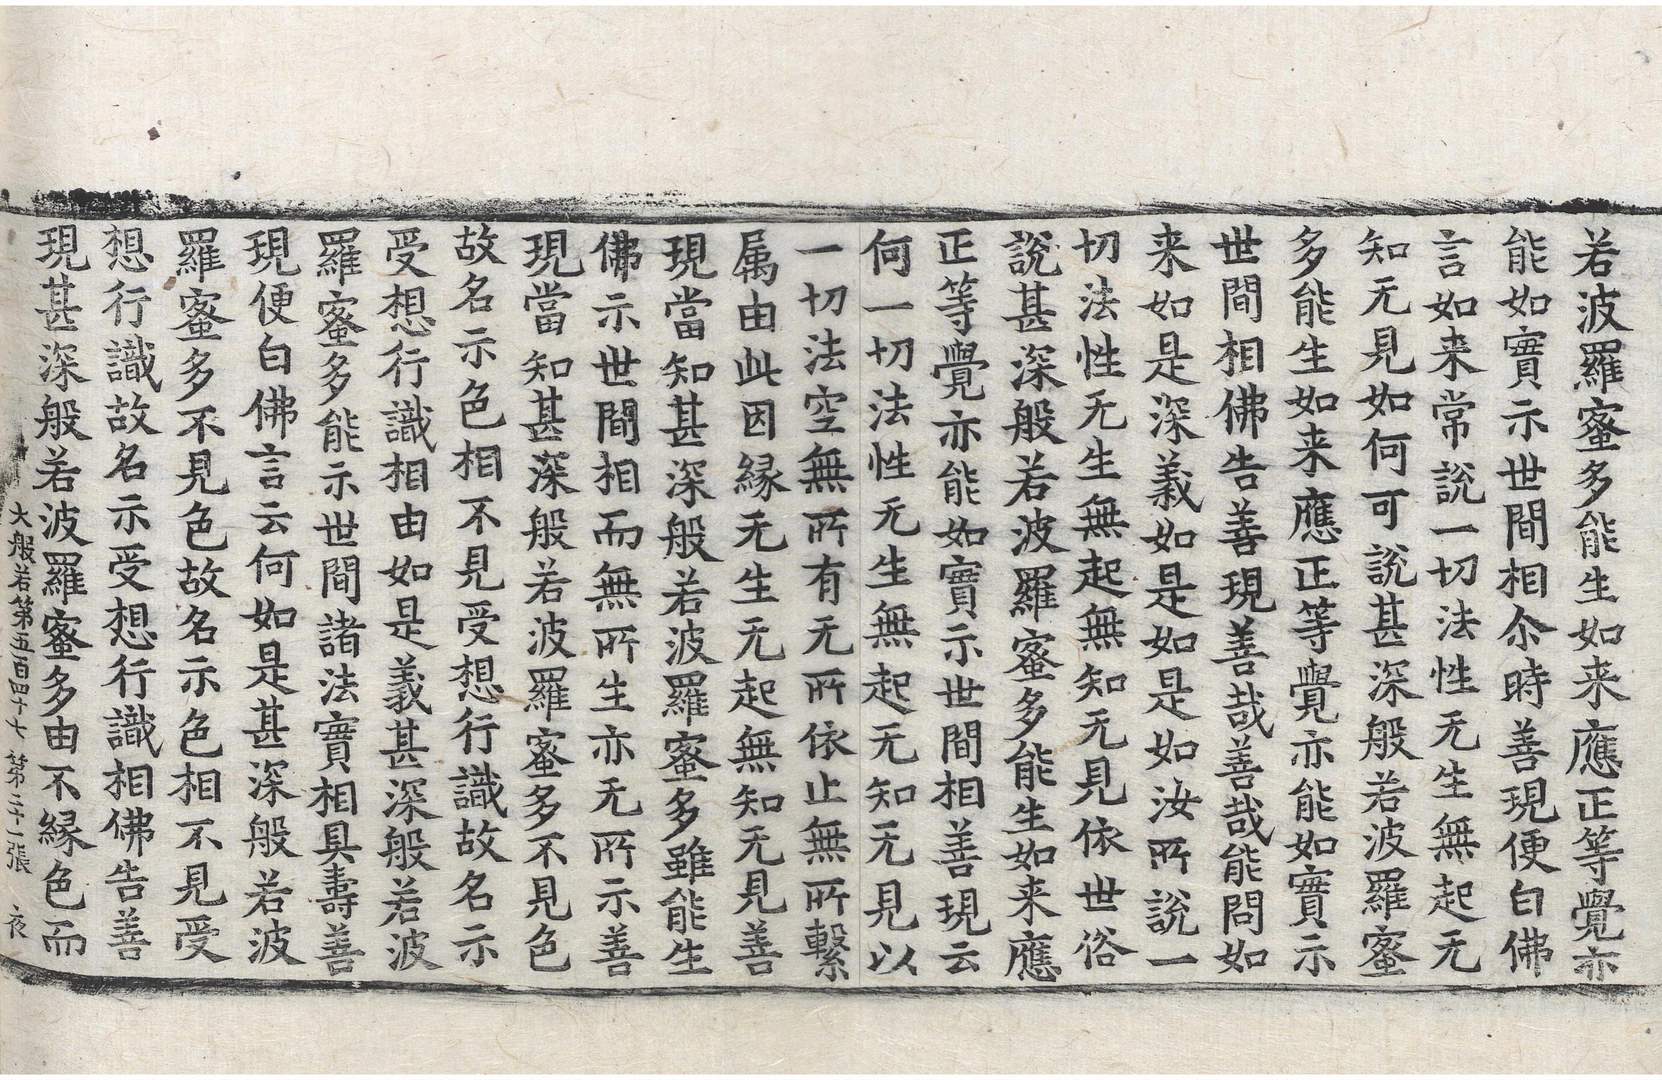 若波羅蜜多能生如来應正等覺亦
能如實示世間相尒時善現便白佛
言如来常說一切法性无生無起无
知无見如何可說甚深般若波羅蜜
多能生如来應正等覺亦能如實示
世間相佛告善現善哉善哉能問如
来如是深義如是如是如汝所說一
切法性无生無起無知无見依世俗
說甚深般若波羅蜜多能生如来應
正等覺亦能如實示世間相善現云
何一切法性无生無起无知无見以
一切法空無所有无所依止無所繫
属由此因緣无生无起無知无見善
現當知甚深般若波羅蜜多雖能生
佛示世間相而無所生亦无所示善
現當知甚深般若波羅蜜多不見色
故名示色相不見受想行識故名示
受想行識相由如是義甚深般若波
羅蜜多能示世間諸法實相具壽善
現便白佛言云何如是甚深般若波
羅蜜多不見色故名示色相不見受
想行識故名示受想行識相佛告善
現甚深般若波羅蜜多由不緣色而
大般若第五百四十七 第二十一張 夜